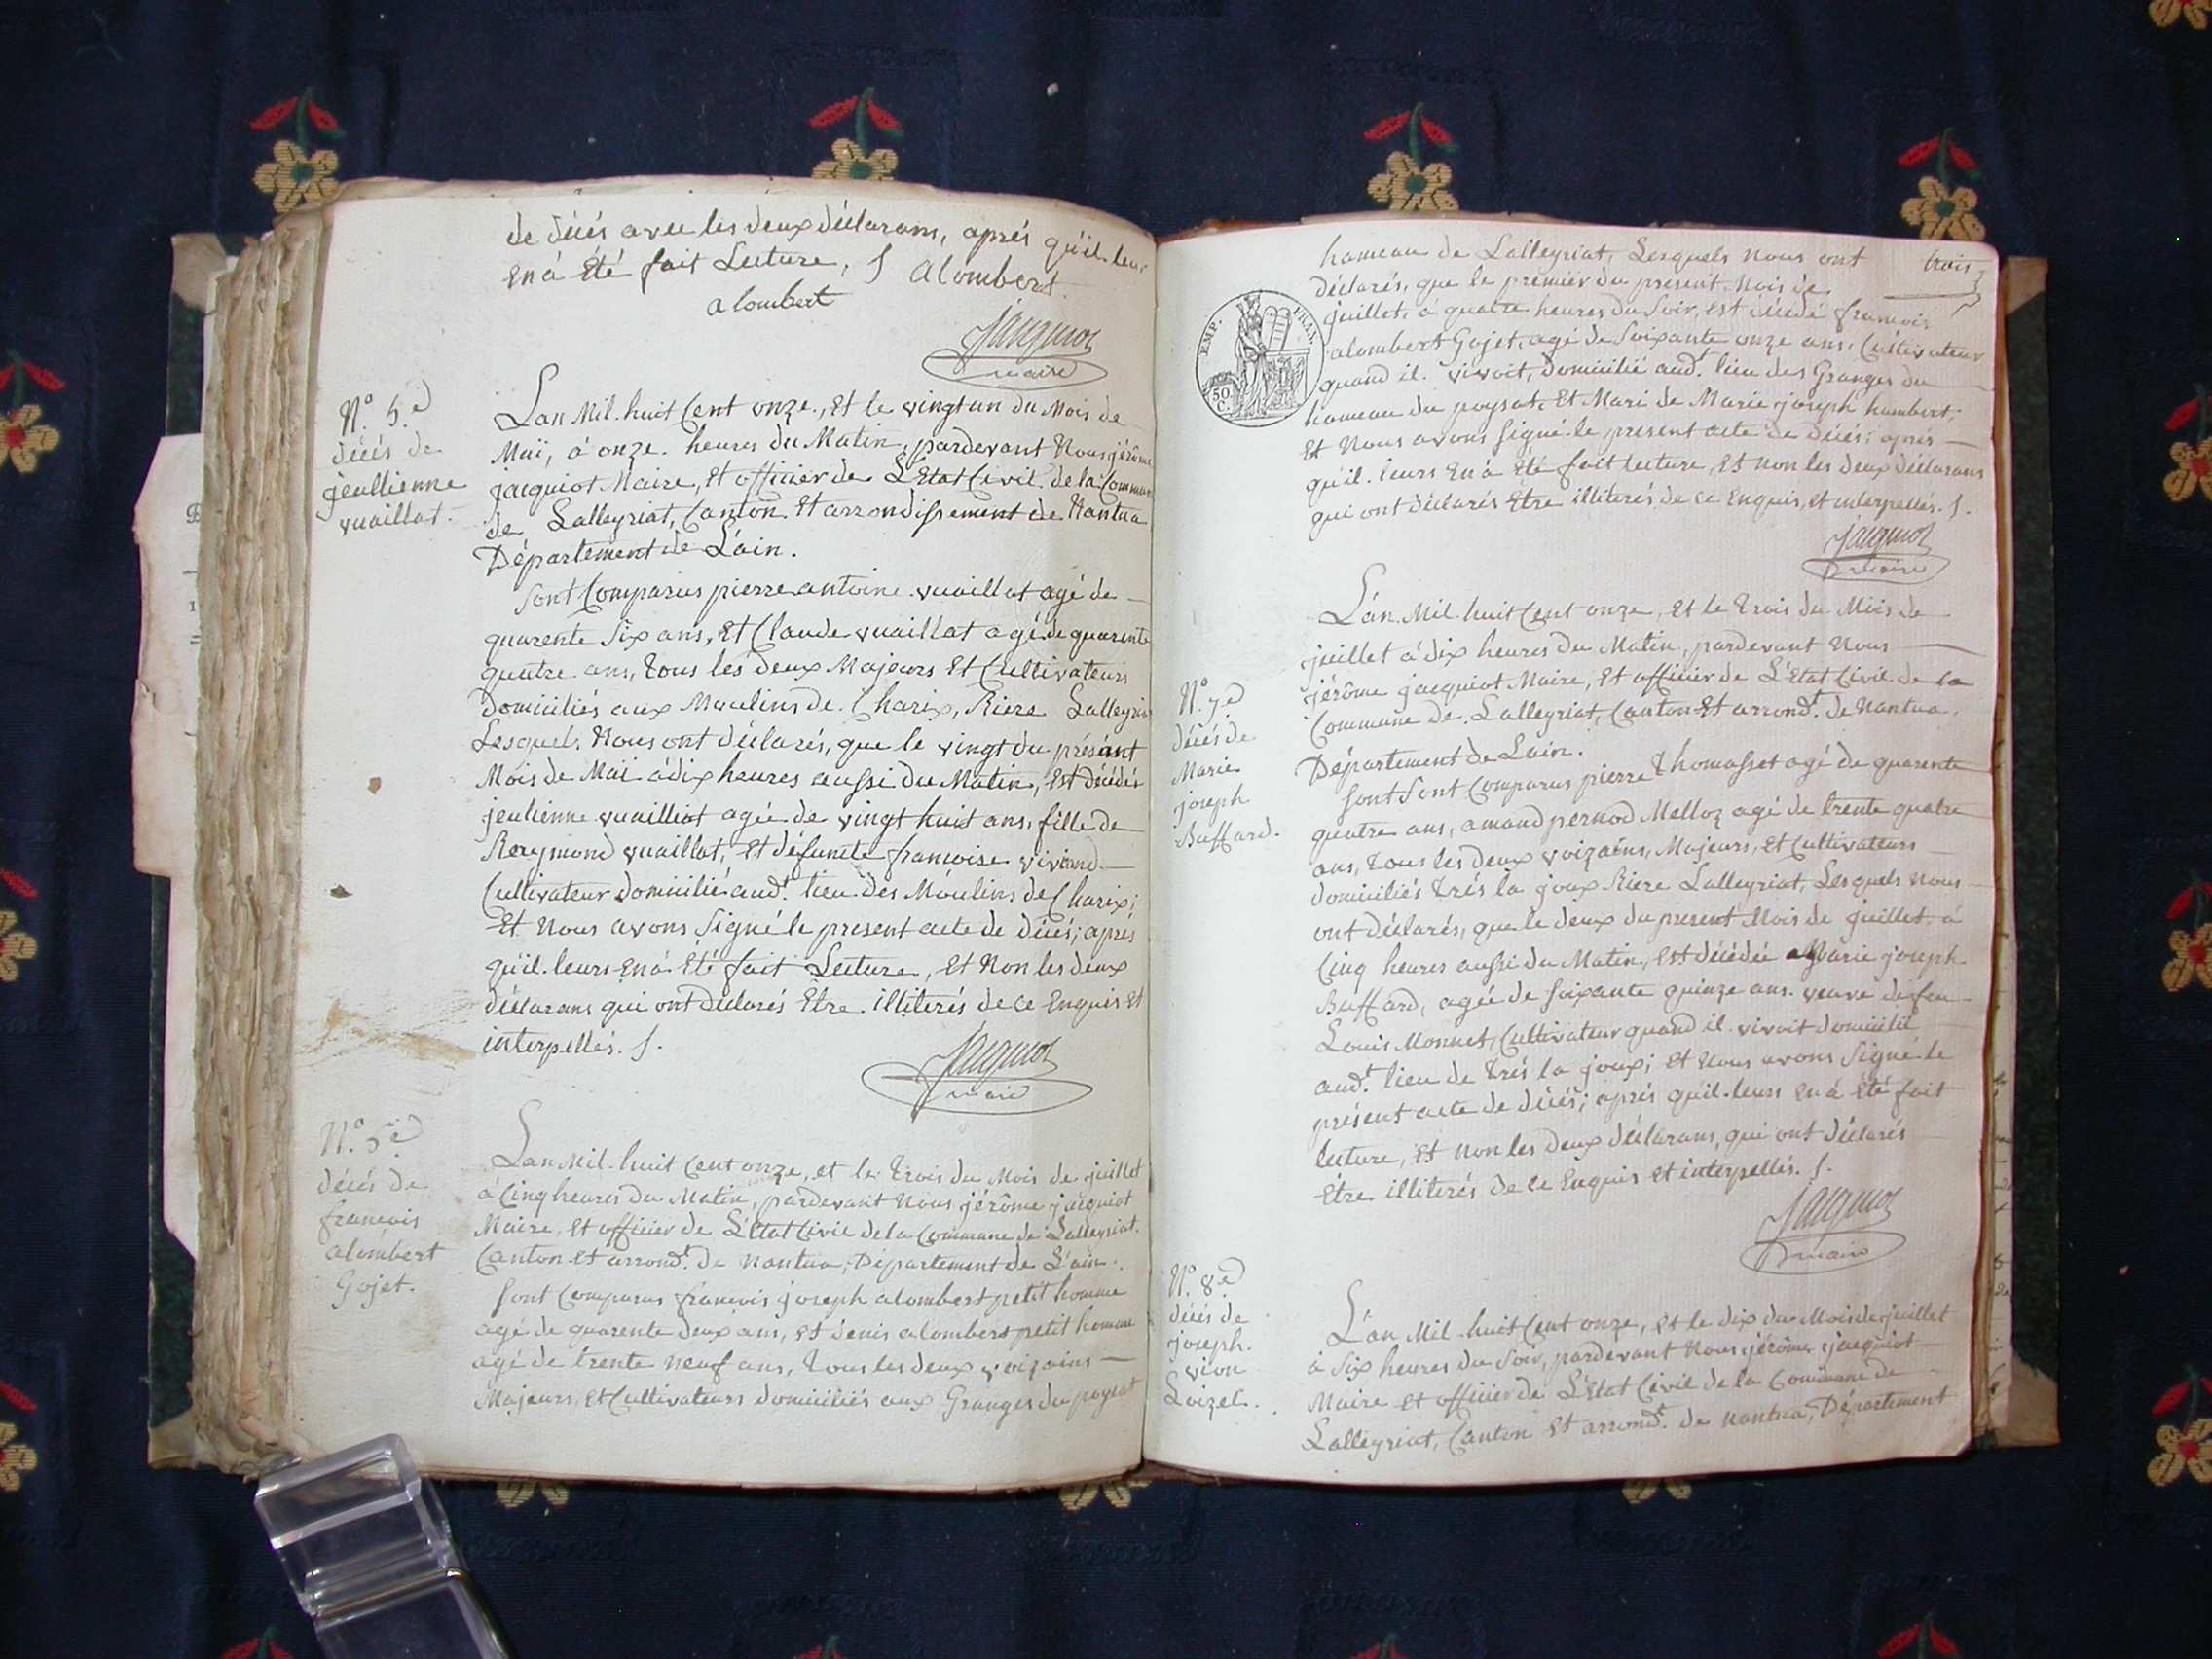 de décés avec les deux déclarans, aprés qu'il leur
en à Été fait Lecture, S Alombert
alombert
Jacquiot
maire
N.º 5.e
décés de
jeullienne
vuaillat.
Lan Mil huit Cent onze, Et le vingt un du Mois de
Maï, à onze heures du Matin, pardevant Nous jérôme
jacquiot Maire, Et officier de L'Etat Civil de la Commune
de Lalleyriat, Canton Et arrondissement de Nantua
Département de L'ain.
Sont Comparus pierre antoine vuaillat agé de
quarente Six ans, Et Claude vuaillat agé de quarente
quatre ans, tous les deux Majeurs Et Cultivateurs
domiciliés aux Moulins de Charix, Riere Lalleyriat
Lesquels Nous ont déclarés, que le vingt du présent
Mois de Maï à dix heures aussi du Matin, Est décédée
jeulienne vuailliat agée de vingt huit ans, fille de
Reymond vuaillat, Et défuncte francoise viviand
Cultivateur domicilié aud.t lieu des Moulins de Charix;
Et Nous avons Signé le present acte de décés; aprés
qu'il leurs en à Été fait Lecture, Et Non les deux
déclarans qui ont Déclarés Être illiterés de ce Enquis Et
interpellés. S.
Jacquiot
maire
N.º
décés de
francois
alombert
Gojet.
Lan Mil huit Cent onze, et le trois du Mois de juillet
à Cinq heures du Matin, pardevant Nous jérôme jacquiot
Maire Et officier de L'Etat Civil de la Commune de Lalleyriat.
Canton Et arrond.t de Nantua, Département de L'ain.
Sont Comparus francois joseph alombert petit homme
agé de quarente deux ans, Et denis alombert petit homme
agé de trente neuf ans, tous les deux voizains
Majeurs, Et Cultivateurs domiciliés aux Granges du poysat
trois
hameau de Lalleyriat, Lesquels Nous ont
déclarés, que le premier du present Mois de
juillet, à quatre heures du Soir, est décédé francois
alombert Gojet, agé de Soixante onze ans, Cultivateur
quand il vivoit, domicilié aud.t lieu des Granges du
hameau du poysat, Et Mari de Marie joseph humbert;
Et Nous avons Signé le present acte de décés; aprés
qu'il leurs en à Été fait lecture, Et Non les deux déclarans
qui ont déclarés Etre illiterés de ce Enquis, et interpellés. S.
EMP. FRAN.
50 C.
Jacquiot
maire
N.º 7.e
décés de
Marie
joseph
Buffard.
L'an Mil huit Cent onze, Et le trois du Mois de
juillet à dix heures du Matin, pardevant Nous
jérôme jacquiot Maire, Et officier de L'Etat Civil de la
Commune de Lalleyriat, Canton Et arrond.t de Nantua.
Département de Lain.
Sont Sont Comparus pierre thomasset agé de quarente
quatre ans, amand pernod Melloz agé de trente quatre
ans, tous les deux voizains, Majeurs, Et Cultivateurs
domiciliés trés la joux Riere Lalleyriat, Lesquels Nous
ont déclarés, que le deux du present Mois de juillet à
Cinq heures aussi du Matin, Est décédée Marie joseph
Buffard, agée de soixante quinze ans. veuve de feu
Louis Monnet, Cultivateur quand il vivoit domicilié
aud.t lieu de trés la joux; Et Nous avons Signé le
présent acte de décés; aprés qu'il leurs en à Été fait
lecture, Et Non les deux déclarans, qui ont déclarés
Être illiterés de ce Enquis Et interpellés. S.
Jacquiot
maire
N.º 8.e
décés de
joseph
vion
Loizel.
L'an Mil huit Cent onze, et le dix du Mois de juillet
à Six heures du Soir, pardevant Nous jérôme jacquiot
Maire et officier de L'Etat Civil de la Commune de
Lalleyriat, Canton Et arrond.t de Nantua, Département